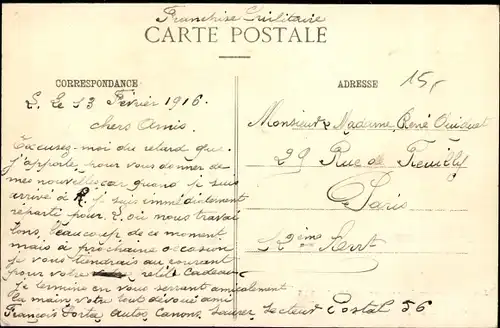 Franchise Militaire
CARTE POSTALE
CORRESPONDANCE
S. Le 13 Février 1916.
chers Amis.
Excusez-moi du retard que
j'apporte pour vous donner de
mes nouvelles car quand je suis
arrivé à R. je suis immédiatement
réparti pour L. où nous travail
lons, beaucoup de ce moment
mais à prochaine occasion
je vous tiendrais au courant
pour votre petit Cadeau
je termine en vous serrant amicalement
la main votre tout dévoué ami
François Porte Autos Canons Secteur Postal 56
ADRESSE
15,-
Monsieur Madame René
29 Rue de
Paris
12ème Arrt